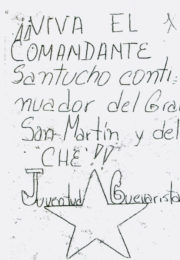 ¡¡VIVA EL
COMANDANTE
Santucho conti-
nuador del Gra
San Martín y del
"CHE"!!
Juventud Guevarista